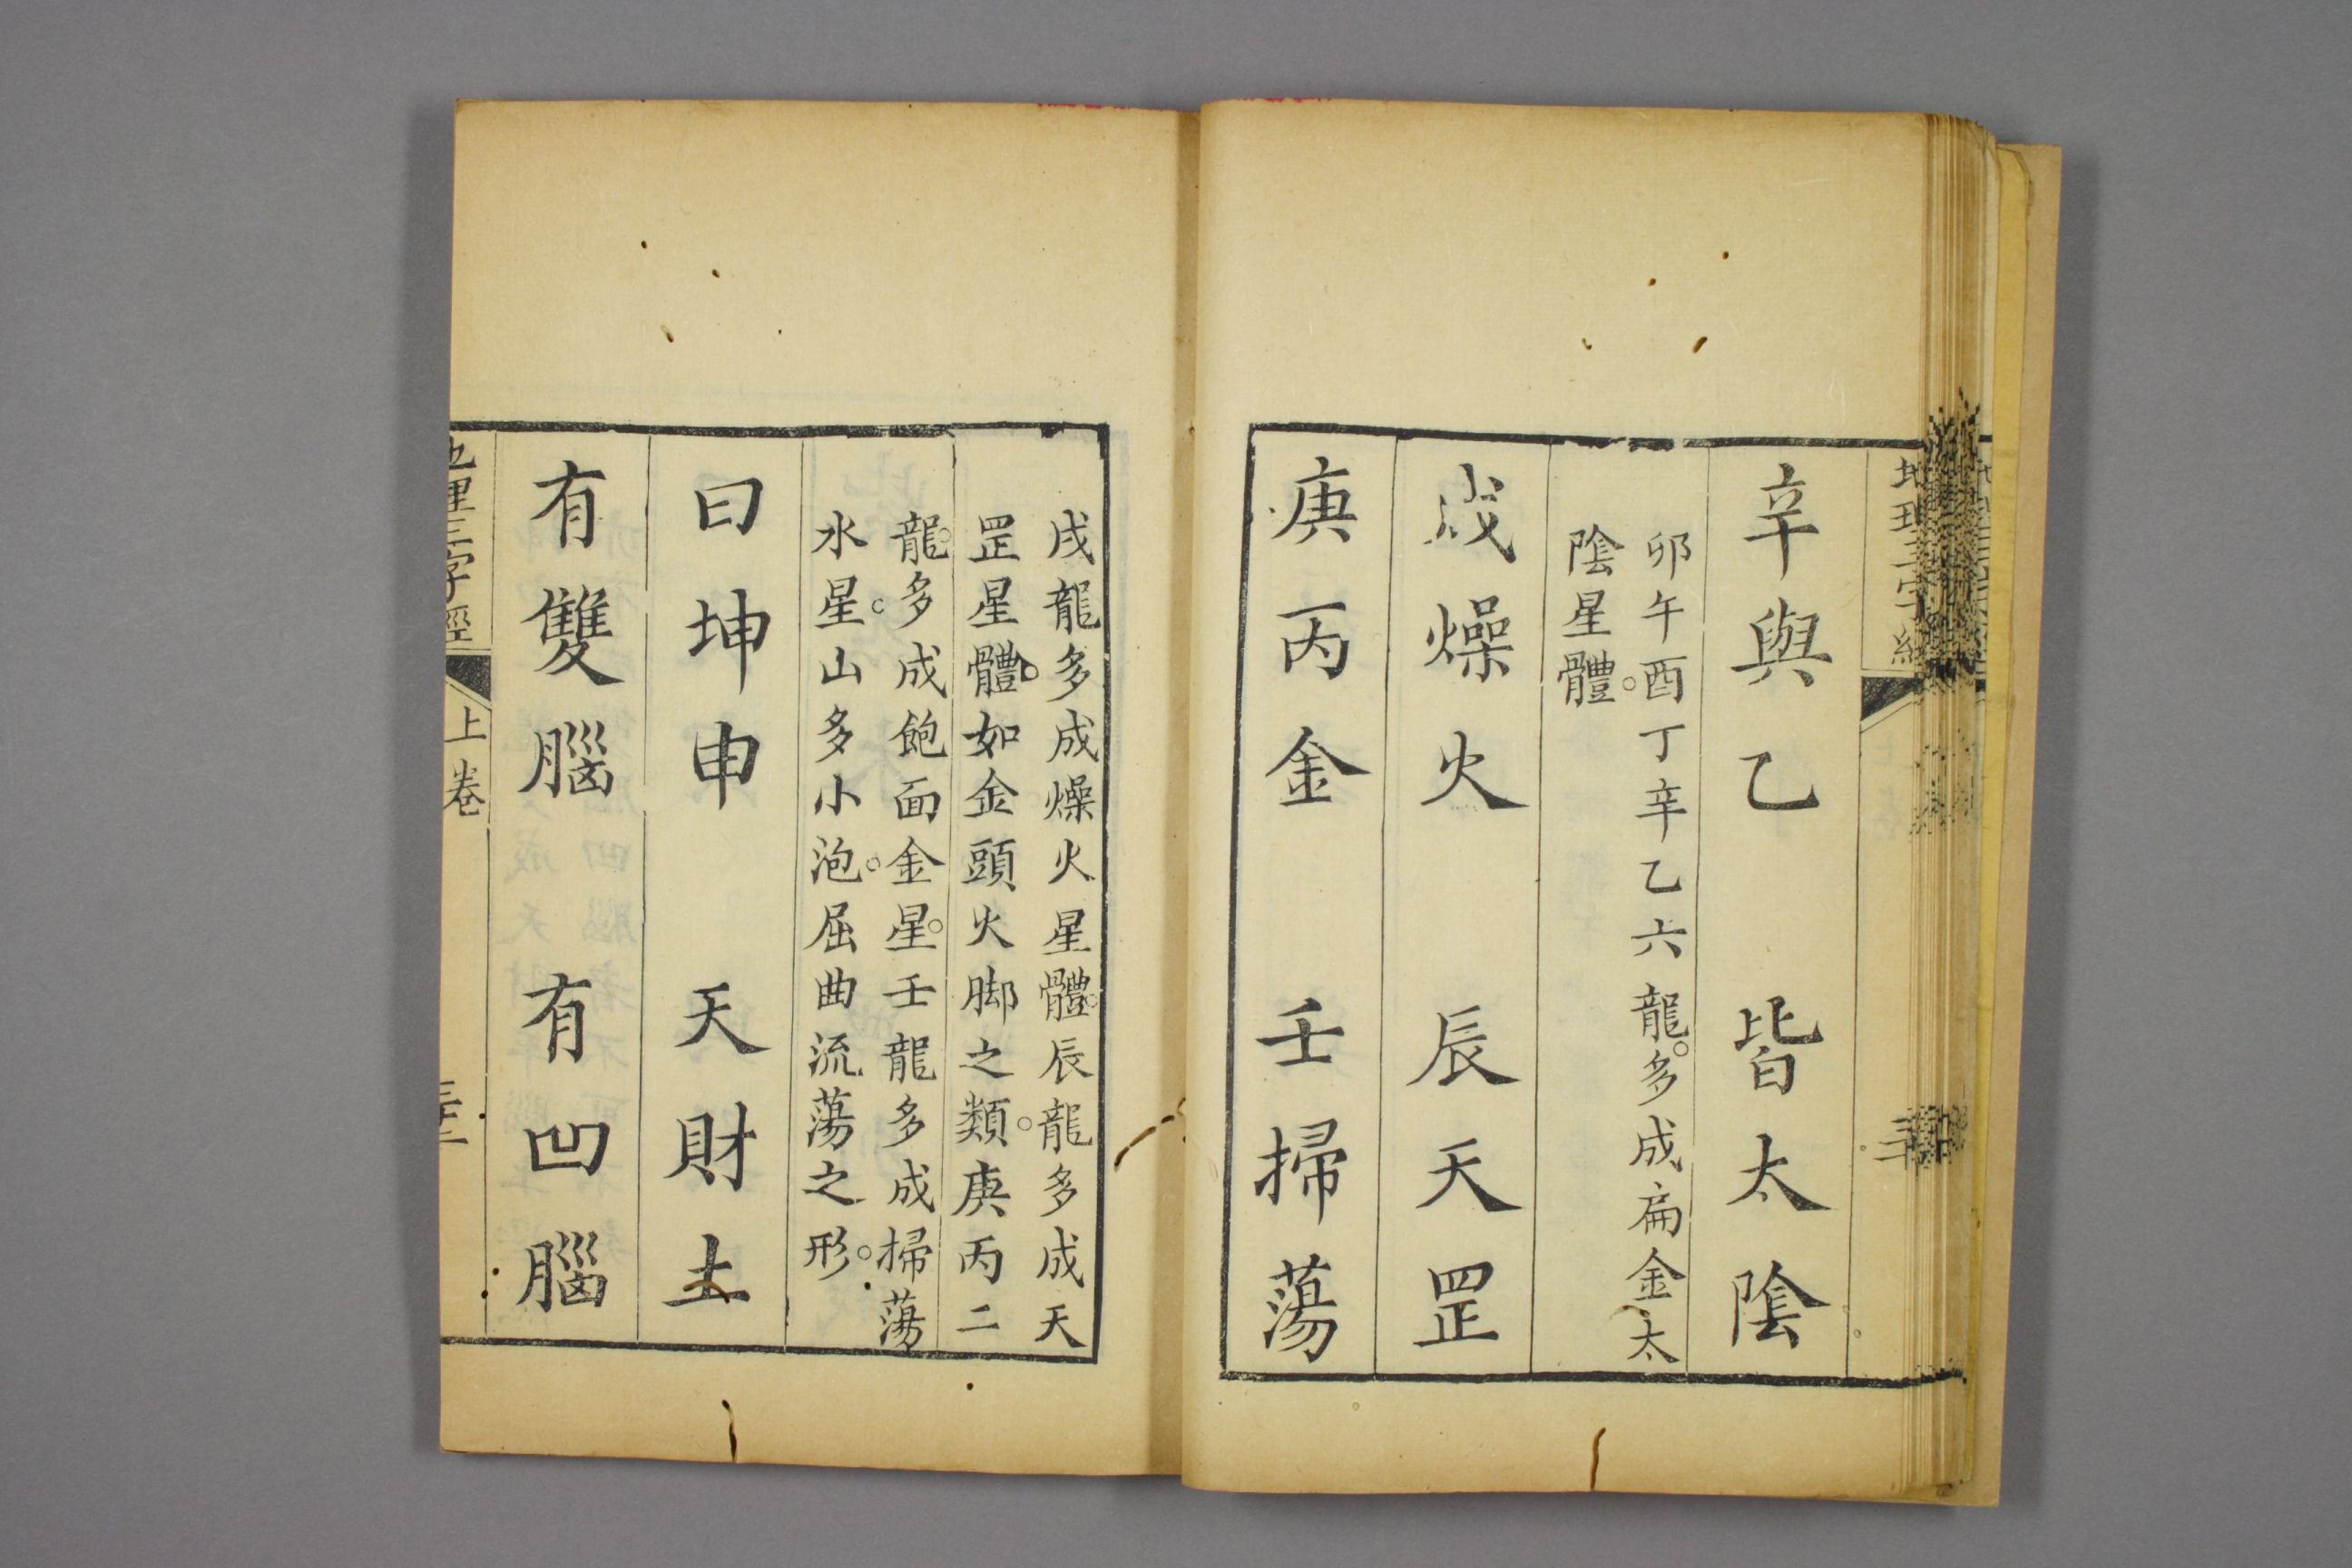 辛與乙　皆太陰
卯午酉丁辛乙六龍。多成扁金太
陰星體。
戌燥火　辰天罡
庚丙金　壬掃蕩
戌龍多成燥火星體。辰龍多成天
罡星體。如金頭火脚之類。庚丙二
龍。多成飽面金星。壬龍多成掃蕩
水星。山多小泡。屈曲流蕩之形。
曰坤申　天財土
有雙腦　有凹腦
地理三字經
上卷